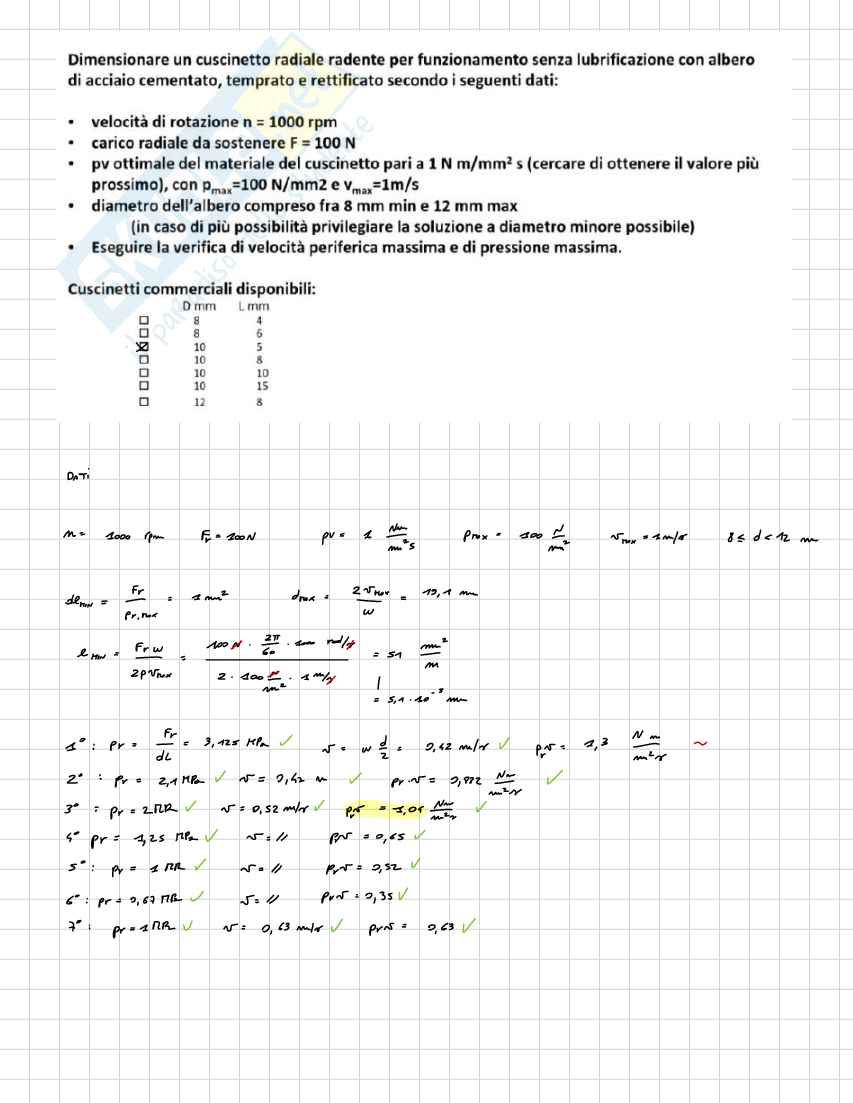 Dimensionare un cuscinetto radiale radente per funzionamento senza lubrificazione con albero
di acciaio cementato, temprato e rettificato secondo i seguenti dati:
• velocità di rotazione n = 1000 rpm
• carico radiale da sostenere F = 100 N
• pv ottimale del materiale del cuscinetto pari a 1 N m/mm² s (cercare di ottenere il valore più
prossimo), con pmax=100 N/mm2 e vmax=1m/s
• diametro dell'albero compreso fra 8 mm min e 12 mm max
(in caso di più possibilità privilegiare la soluzione a diametro minore possibile)
• Eseguire la verifica di velocità periferica massima e di pressione massima.
Cuscinetti commerciali disponibili:
D mm L mm
☐ 8 4
☐ 8 6
☒ 10 5
☐ 10 8
☐ 10 10
☐ 10 15
☐ 12 8
DATI
n = 1000 rpm Fr = 100N pv = 1 Nm/mm²s Pmax = 100 N/mm² vmax = 1m/s 8 ≤ d < 12 m
dlmin = Fr/Pr,max = 1 mm² dmax = 2vmax/ω = 19,1 mm
lmin = Fr ω/2pvmax = 100 N · 2π/60 · 1000 rad/s / 2 · 100 N/mm² · 1 m/s = 51 mm²/m
= 5,1 · 10⁻³ mm
1° : Pr = Fr/dL = 3,125 MPa ✓ v = ω d/2 = 0,42 m/s ✓ Prv = 1,3 N m/mm²s ~
2° : Pr = 2,1 MPa ✓ v = 0,42 m ✓ Pr·v = 0,872 Nm/mm²s ✓
3° : Pr = 2 MPa ✓ v = 0,52 m/s ✓ Prv = 1,04 Nm/mm²s ✓
4° Pr = 1,25 MPa ✓ v = // Prv = 0,65 ✓
5° : Pr = 1 MPa ✓ v = // Prv = 0,52 ✓
6° : Pr = 0,67 MPa ✓ v = // Prv = 0,35 ✓
7° : Pr = 1 MPa ✓ v = 0,63 m/s ✓ Prv = 0,63 ✓